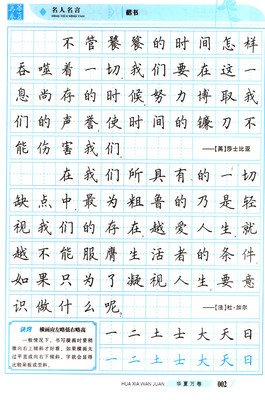 名人名言
MING REN MING YAN
楷书
不管饕餮的时间怎样
吞噬着一切,我们要在这一
息尚存的时候努力博取我
们的声誉,使时间的镰刀不
能伤害我们。
——[英]莎士比亚
在我们所具有的一切
缺点中最为粗鲁的乃是轻
视我们的存在越爱人生就
越不能服膺生活者的条件
如果只为了凝视人生要意
识做什么呢
——[法]杜·加尔
诀窍 横画应左略低右略高
一般情况下,书写横画时要稍
微向右上倾斜才好看。如果横画太
过平直或向右下倾斜,字就会显得
比较呆板或歪斜。
一二土士大天日
一二土士大天日
HUA XIA WAN JUAN 华夏万卷 002